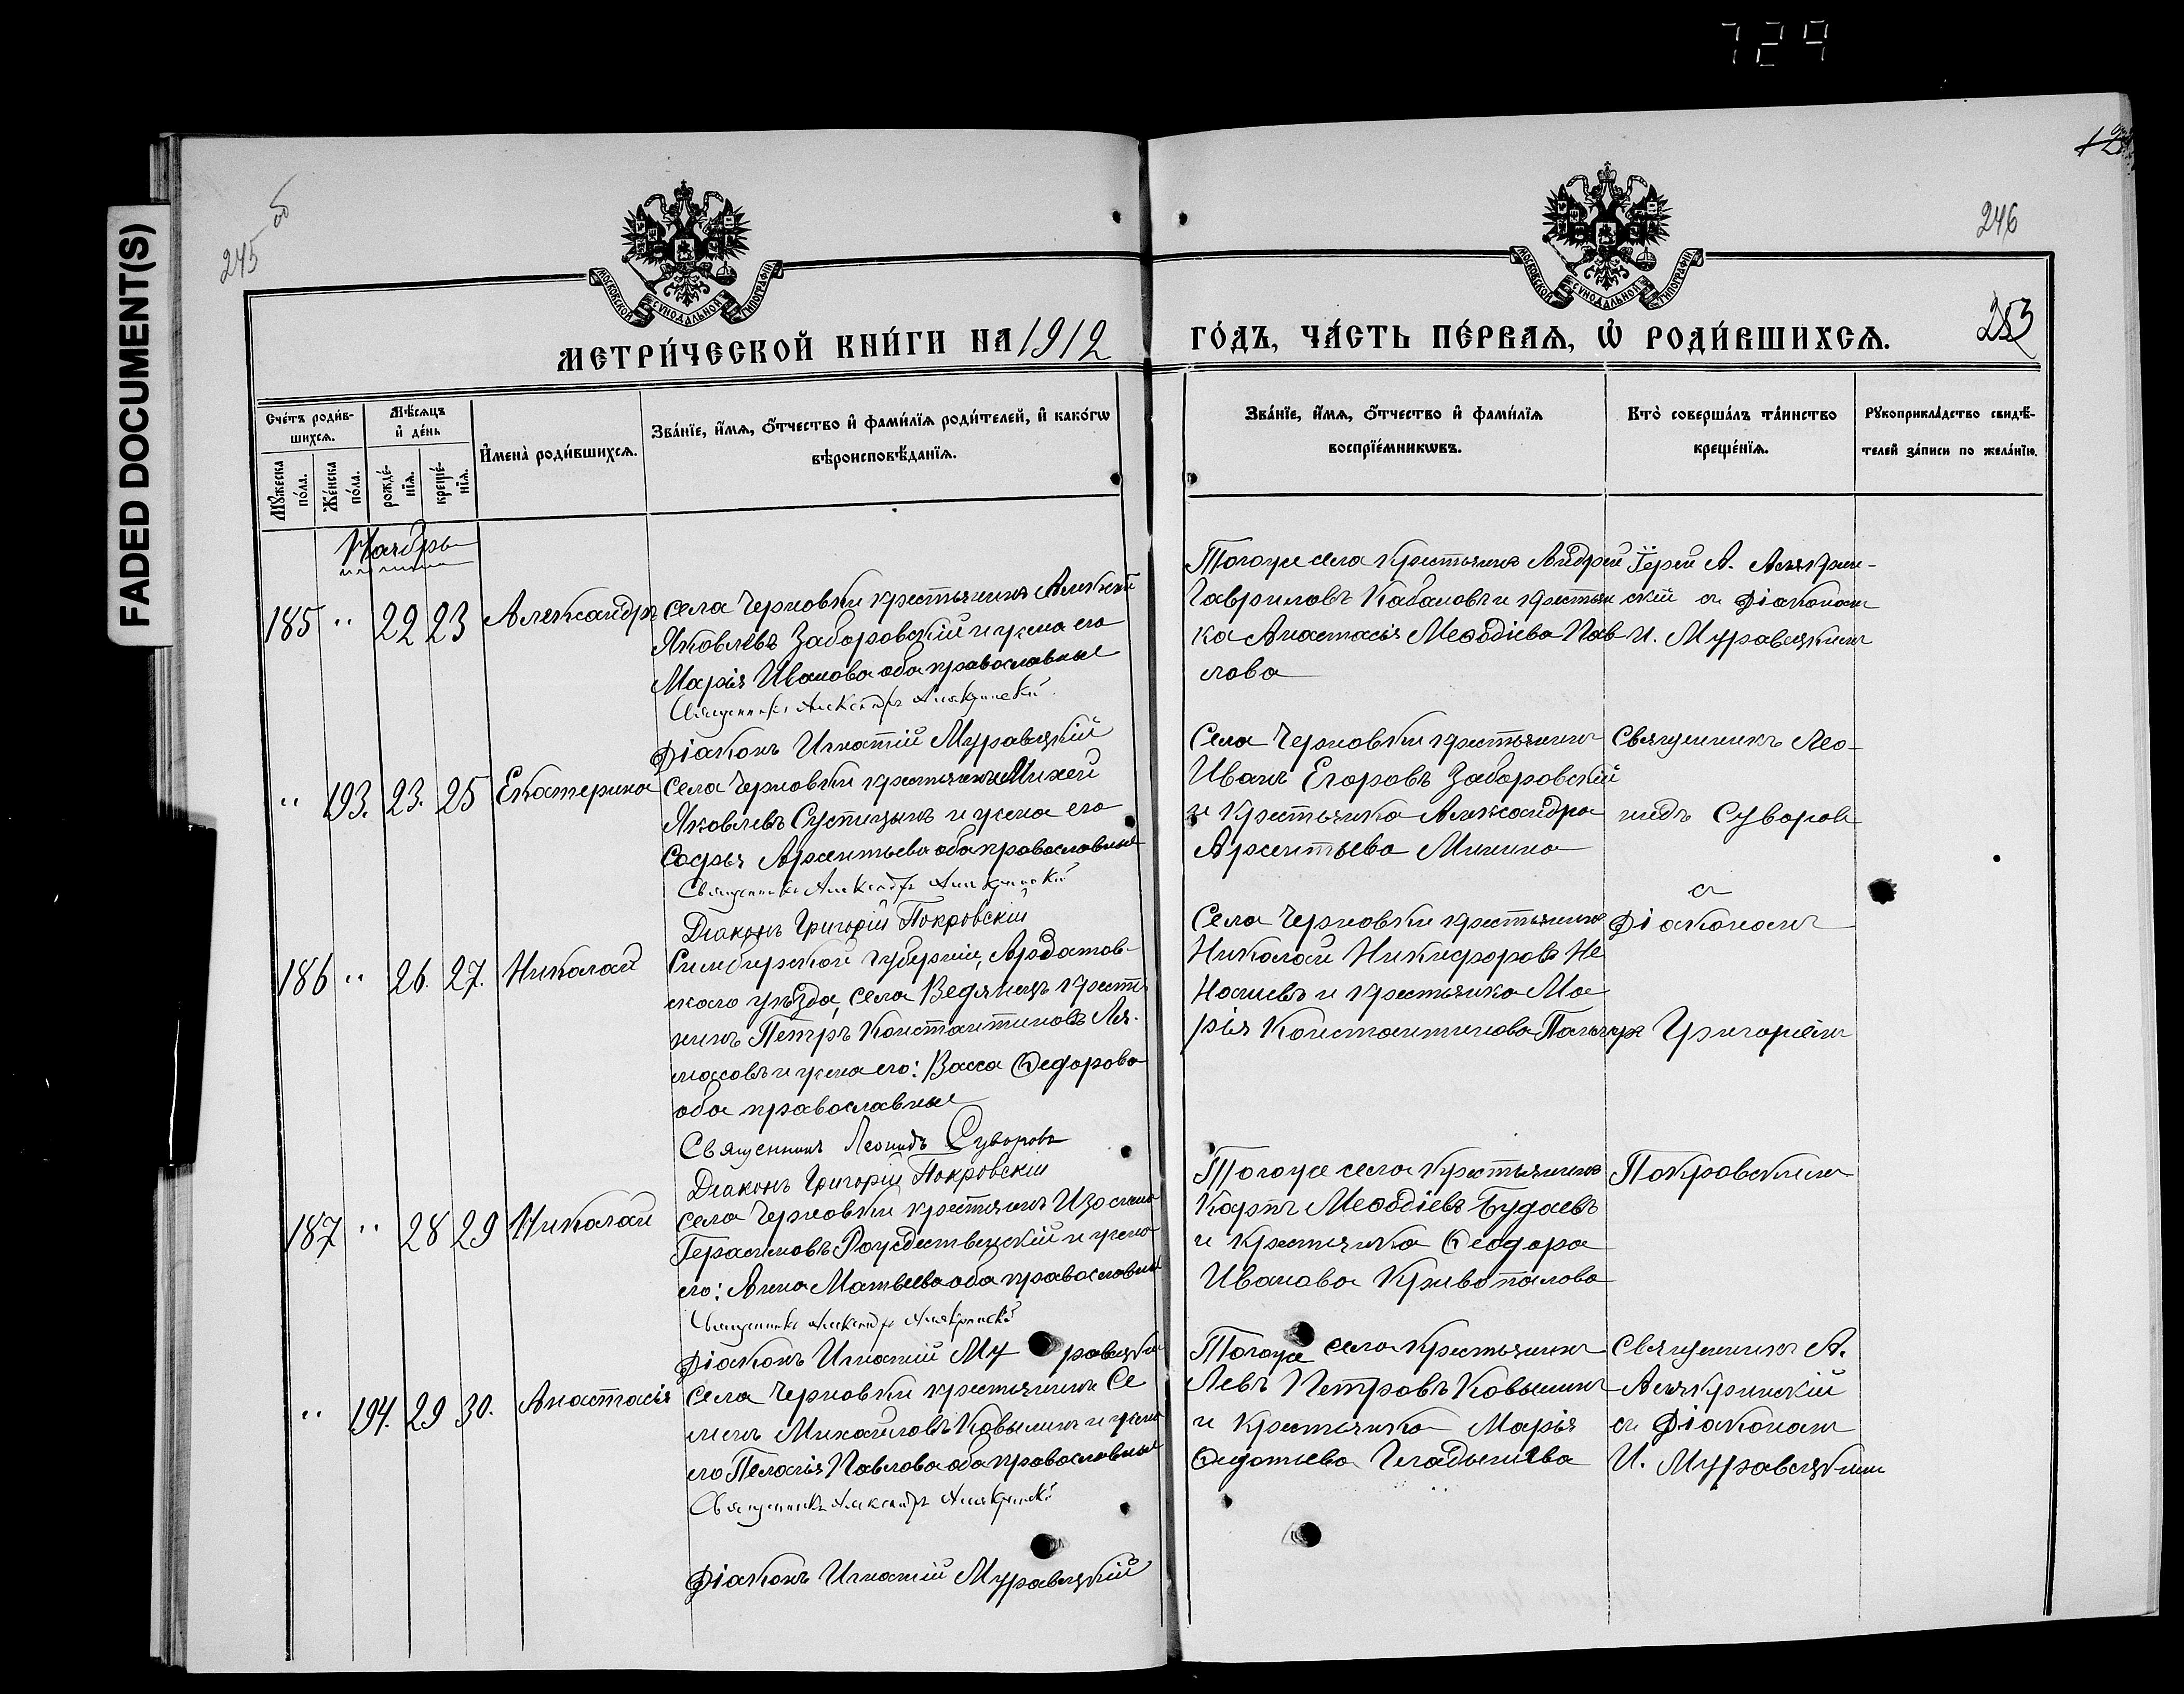 729
FADED DOCUMENT(S)
245 об
246
253
МОСКОВСКОЙ СУНОДАЛЬНОЙ ТИПОГРАФІИ
МОСКОВСКОЙ СУНОДАЛЬНОЙ ТИПОГРАФІИ
МЕТРИ́ЧЕСКОЙ КНИ́ГИ НА 1912 ГО́ДЪ, ЧА́СТЬ ПЕ́РВАѦ, Ѡ҆ РОДИ́ВШИХСѦ.
Сче́тъ роди́в-
шихсѧ.
Мꙋ́жеска
по́ла.
Же́нска
по́ла.
Мѣ́сѧцъ
и҆ де́нь
рожде́-
нїѧ.
креще́-
нїѧ.
И҆мена̀ роди́вшихсѧ.
Зва́нїе, и҆́мѧ, ѻ҆́тчество и҆ фами́лїѧ роди́телей, и҆ како́гѡ
вѣроисповѣ́данїѧ.
Зва́нїе, и҆́мѧ, ѻ҆́тчество и҆ фами́лїѧ
воспрїе́мникѡвъ.
Кто̀ соверша́лъ та́инство
креще́нїѧ.
Рꙋкоприкла́дство свидѣ́-
телей за́писи по жела́нїю.
Ноябрь
185 " 22 23 Александръ
села Черновки крестьянинъ Алексѣй
Яковлевъ Заборовскій и жена его
Марія Иванова оба православные
Священникъ Александръ Алякринскій
Діаконъ Игнатій Муравецкій
Тогоже села крестьянинъ Андрей
Гавриловъ Кабановъ и крестьян
ка Анастасія Меѳодіева Пав
лова
Іерей А. Алякрин-
скій съ Діакономъ
И. Муравецкимъ
" 193. 23. 25 Екатерина
села Черновки крестьянинъ Михей
Яковлевъ Сустицынъ и жена его
Софья Арсентьева оба православные
Священникъ Александръ Алякринскій
Діаконъ Григорій Покровскій
Села Черновки крестьянинъ
Иванъ Егоровъ Заборовскій
и крестьянка Александра
Арсентьева Минина
Священникъ Лео-
нидъ Суворов
съ
Діакономъ
186 " 26. 27. Николай
Симбирской губерніи, Ардатов-
скаго уѣзда, села Ведянецъ крестья
нинъ Петръ Константиновъ Ля-
масовъ и жена его: Васса Ѳедорова
оба православные
Священникъ Леонидъ Суворовъ
Діаконъ Григорій Покровскій
Села Черновки крестьянинъ
Николай Никифоровъ Не
Ношевъ и крестьянка Ма
рія Константинова
Григоріемъ
187 " 28 29 Николай
села Черновки крестьянинъ Изосима
Герасимовъ Рождественскій и жена
его: Анна Матвеева оба православные
Священникъ Александръ Алякринскій
Діаконъ Игнатій Муравецкій
Тогоже села крестьянинъ
Карпъ Меѳодіевъ Будаевъ
и крестьянка Ѳеодора
Иванова Кривопалова
Покровскимъ
" 194. 29 30. Анастасія
села Черновки крестьянинъ Се
менъ Михайловъ Ковылинъ и жена
его Пелагія Павлова оба православные
Священникъ Александръ Алякринскій
Діаконъ Игнатій Муравецкій
Тогоже села крестьянинъ
Левъ Петровъ Ковылинъ
и крестьянка Марія
Ѳедотьева Гладышева
Священникъ А.
Алякринскій
съ Діакономъ
И. Муравецкимъ